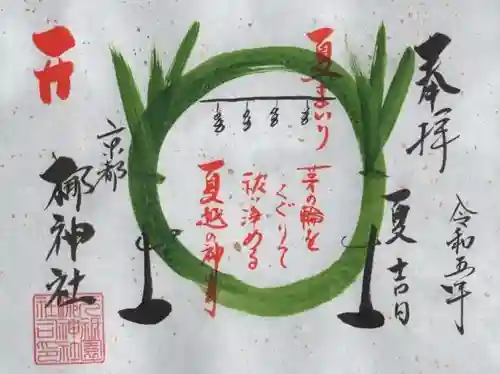 奉拝
令和五年
夏吉日
夏まいり
茅の輪を
くぐりて
祓い浄める
夏越の神事
京都
梛神社